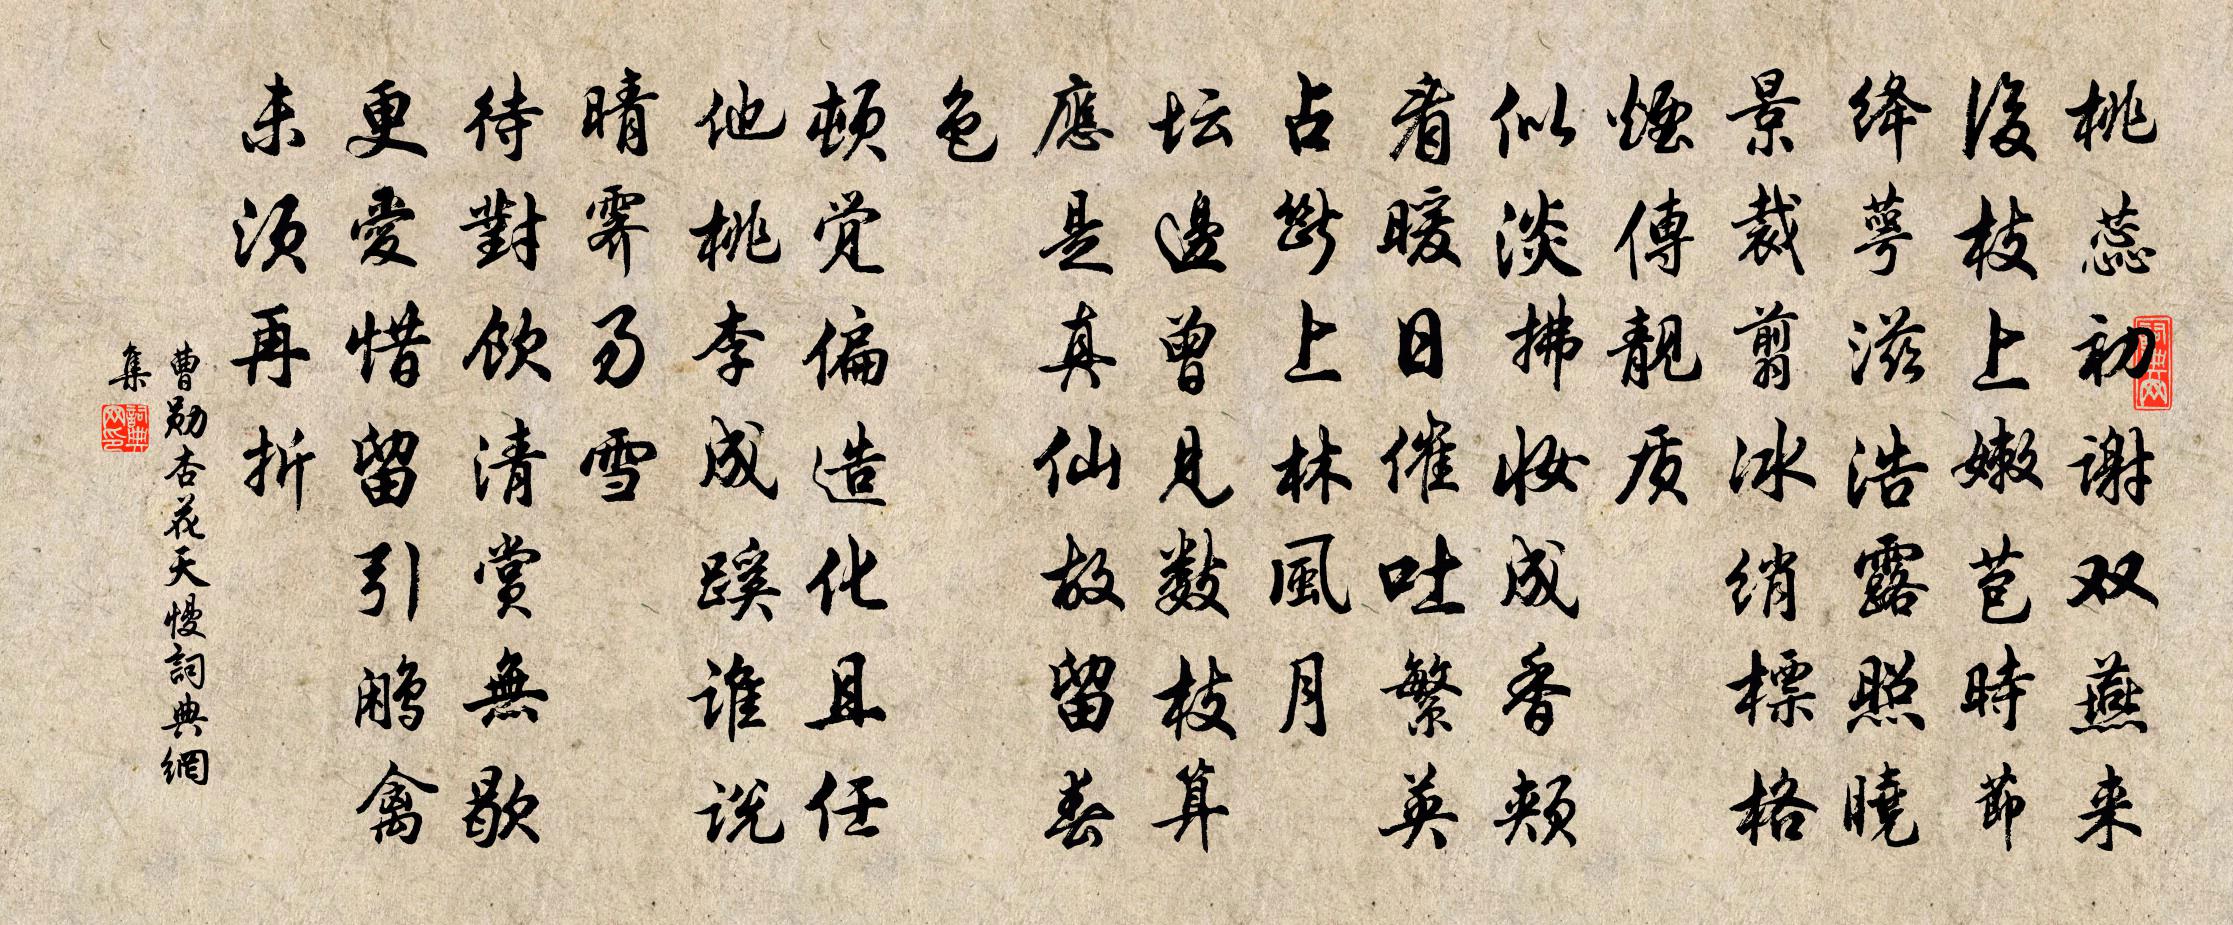 桃蕊初谢双燕来
後枝上嫩苞時節
绛萼滋浩露照曉
景裁剪冰绡標格
煙傳靚质
似淡拂妆成香颊
看暖日催吐繁英
占斷上林風月
坛邊曾見数枝算
應是真仙故留春
色
頓觉偏造化且任
他桃李成蹊谁说
晴霁易雪
待對飲清赏無歇
更愛惜留引鹇禽
未须再折
曹勋杏花天慢詞典網
集
詞典网
詞典网印